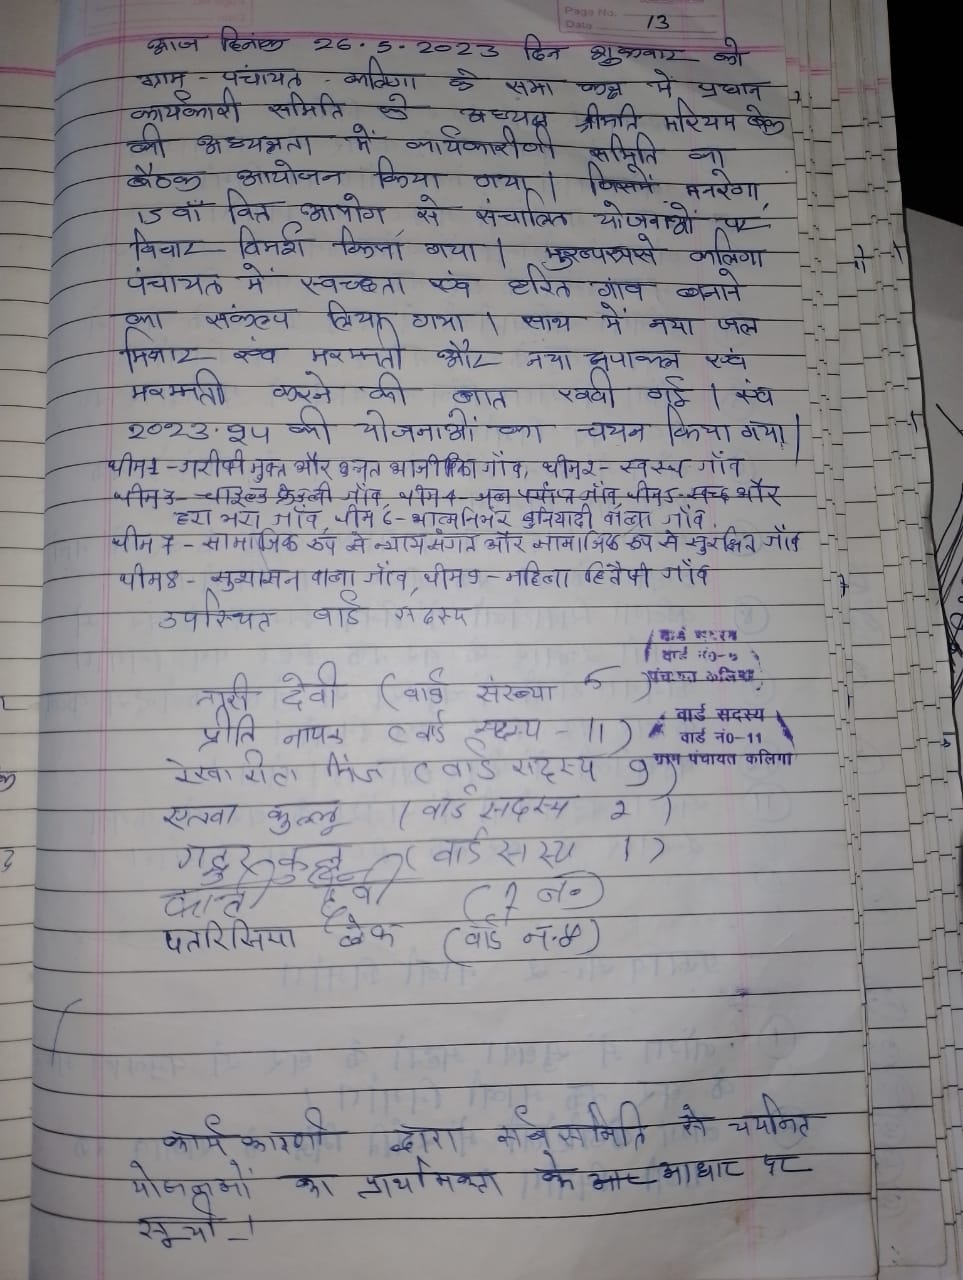 Page No. 13
Date
आज दिनांक 26.5.2023 दिन शुक्रवार को
ग्राम - पंचायत - कलिगा के सभा कक्ष में प्रधान
कार्यकारी समिति के अध्यक्ष श्रीमति मरियम केरकेट्टा
की अध्यक्षता में कार्यकारीणी समिति का
बैठक आयोजन किया गया। जिसमें मनरेगा,
15वाँ वित्त आयोग से संचालित योजनाओं पर
विचार - विमर्श किया गया। मुख्यरूपसे कलिगा
पंचायत में स्वच्छता एवं हरित गांव बनाने
का संकल्प लिया गया। साथ में नया जल
मिनार एवं मरम्मती और नया चपाकल एवं
मरम्मती करने की बात रखी गई। एवं
2023.24 की योजनाओं का चयन किया गया।
थीम1 - गरीबी मुक्त और उन्नत आजीविका गाँव, थीम2 - स्वस्थ गाँव
थीम 3 - चाइल्ड फ्रेंडली गाँव, थीम 4 - जल पर्याप्त गाँव, थीम5 - स्वच्छ और
हरा भरा गाँव, थीम 6 - आत्मनिर्भर बुनियादी वाला गाँव.
थीम 7 - सामाजिक रूप से न्यायसंगत और सामाजिक रूप से सुरक्षित गाँव
थीम 8 - सुशासन वाला गाँव, थीम 9 - महिला हितैषी गाँव
उपस्थित वार्ड सदस्य
वार्ड सदस्य
वार्ड नं0-5
पंचायत कलिगा
तारी देवी (वार्ड संख्या 5)
वार्ड सदस्य
वार्ड नं0-11
ग्राम पंचायत कलिगा
प्रीति नायक (वार्ड सदस्य - 11)
रेखा रीता मिंज (वार्ड सदस्य 9)
एतवा कुल्लू (वार्ड सदस्य 2)
कुल्लू (वार्ड सस्य 1)
देवी (7 नं०)
पतरिसिया केरक (वार्ड नं. 8)
कार्य कारणी द्वारा समिति से चयनित
योजनाओं का प्राथमिकता के आधार पर
सूची -।